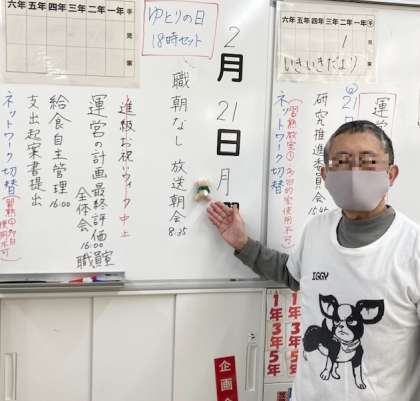 六年 五年 四年 三年 二年 一年
児童
ゆとりの日
18時セット
2月21日月
職朝なし 放送朝会 8:35
進級お祝いウィーク 中止
運営の計画最終評価
全体会 16:00 職員室
給食自主管理 16:00
支出起案書提出
ネットワーク切替
六年 五年 四年 三年 二年 一年
1
いきいきだより
運営
研究推進委員会 15:45
ネットワーク切替
IGGY
1年3年5年
1年3年5年
企画会